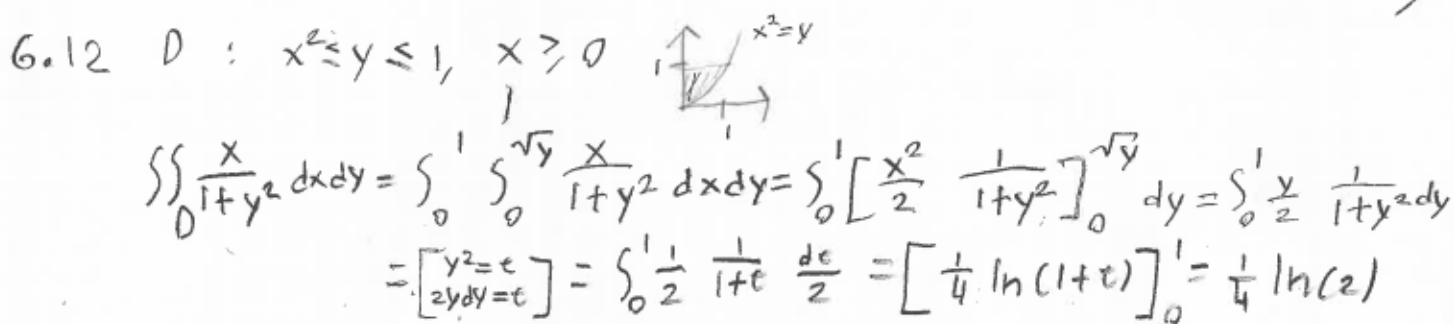 6.12 D : x² ≤ y ≤ 1, x ≥ 0 1 x²=y 1
∬_D x/(1+y²) dxdy = ∫₀¹ ∫₀^√y x/(1+y²) dxdy = ∫₀¹ [x²/2 1/(1+y²)]₀^√y dy = ∫₀¹ y/2 1/(1+y²) dy
= [y²=t 2ydy=t] = ∫₀¹ 1/2 1/(1+t) dt/2 = [1/4 ln(1+t)]₀¹ = 1/4 ln(2)